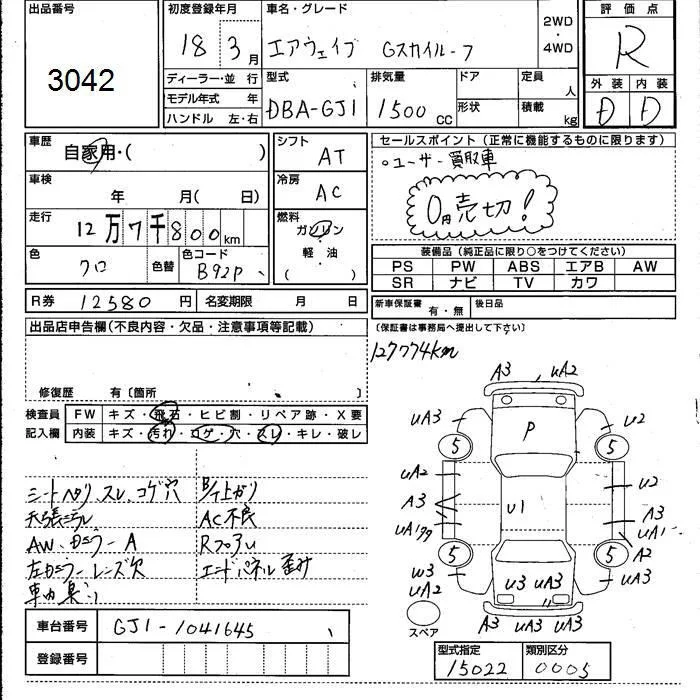 出品番号
3042
初度登録年月
18 3月
車名・グレード
エアウェイブ Gスカイルーフ
2WD
・
4WD
評価点
R
ディーラー・並行
モデル年式 年
ハンドル 左・右
型式
DBA-GJ1
排気量
1500 CC
ドア
形状
定員 人
積載 kg
外装 内装
D D
車歴
自家用・( )
車検
年 月( 日)
走行
12万7千800km
色
クロ
色替
色コード
B92P
シフト
AT
冷房
AC
燃料
ガソリン
・
軽・油
( )
セールスポイント(正常に機能するものに限ります)
。ユーザー買取車
0円売切!
装備品(純正品に限り○をつけてください)
PS PW ABS エアB AW
SR ナビ TV カワ
R券 12580円
名変期限 月 日
新車保証書 有・無
後日品
(保証書は事務局へ提出して下さい)
出品店申告欄(不良内容・欠品・注意事項等記載)
修復歴 有〔箇所 〕
127774km
検査員
記入欄
FW キズ・飛石・ヒビ割・リペア跡・X要
内装 キズ・汚れ・コゲ・穴・スレ・キレ・破レ
シートヘタリ、スレ、コゲ穴
AW、カラーA
AC不良
エンドパネル歪み
車台番号 GJ1-1041645
登録番号
A3 UA2
UA3 P U2
5 5
UA2 U2
A3 U1 A3
UA1
A2
5 5
W3 U3 UA3 UA3
UA2
A3 UA3 UA3
スペア
型式指定
15022
類別区分
0005